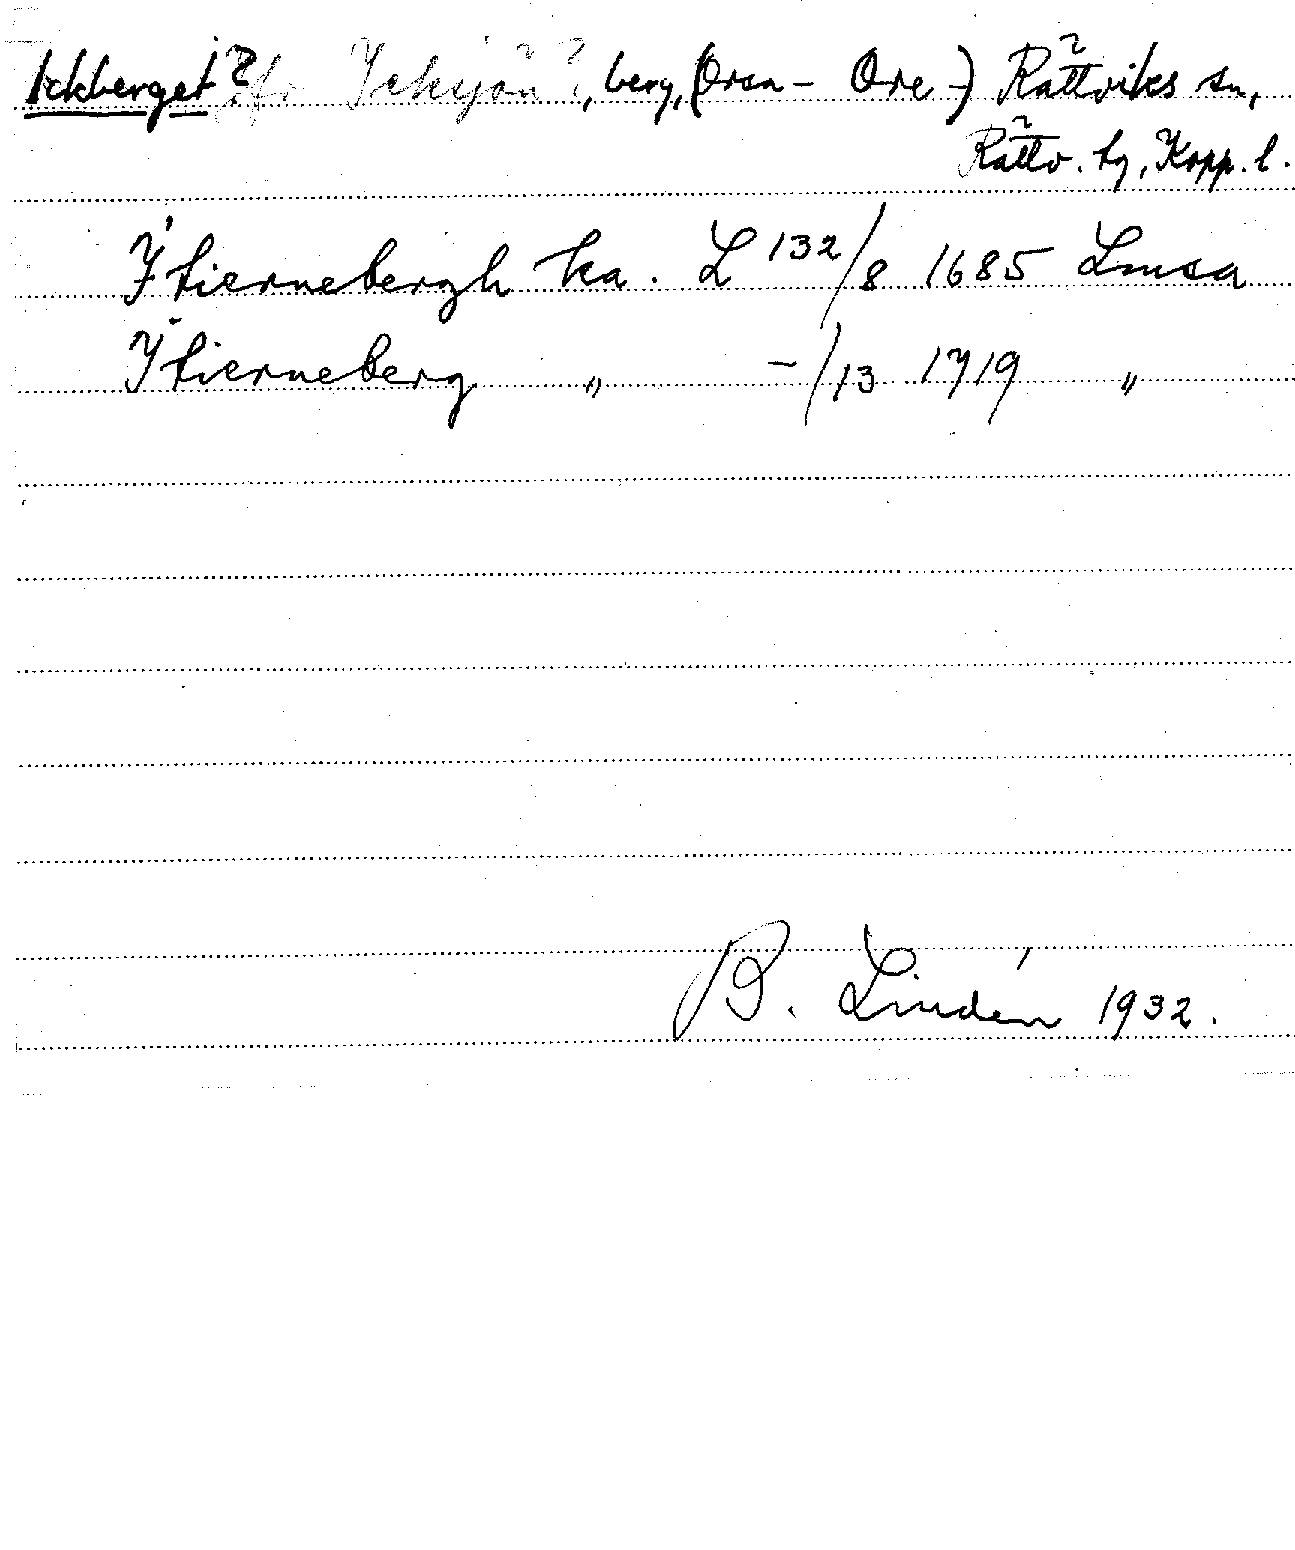 Ickberget? Jfr Icksjön?, berg, (Orsa – Ore –) Rättviks sn,
Rättv. tg, Kopp. l.
Itiernebergh ka. L 132/8 1685 Lmsa
Itierneberg " –/13 1719 "
B. Lindén 1932.